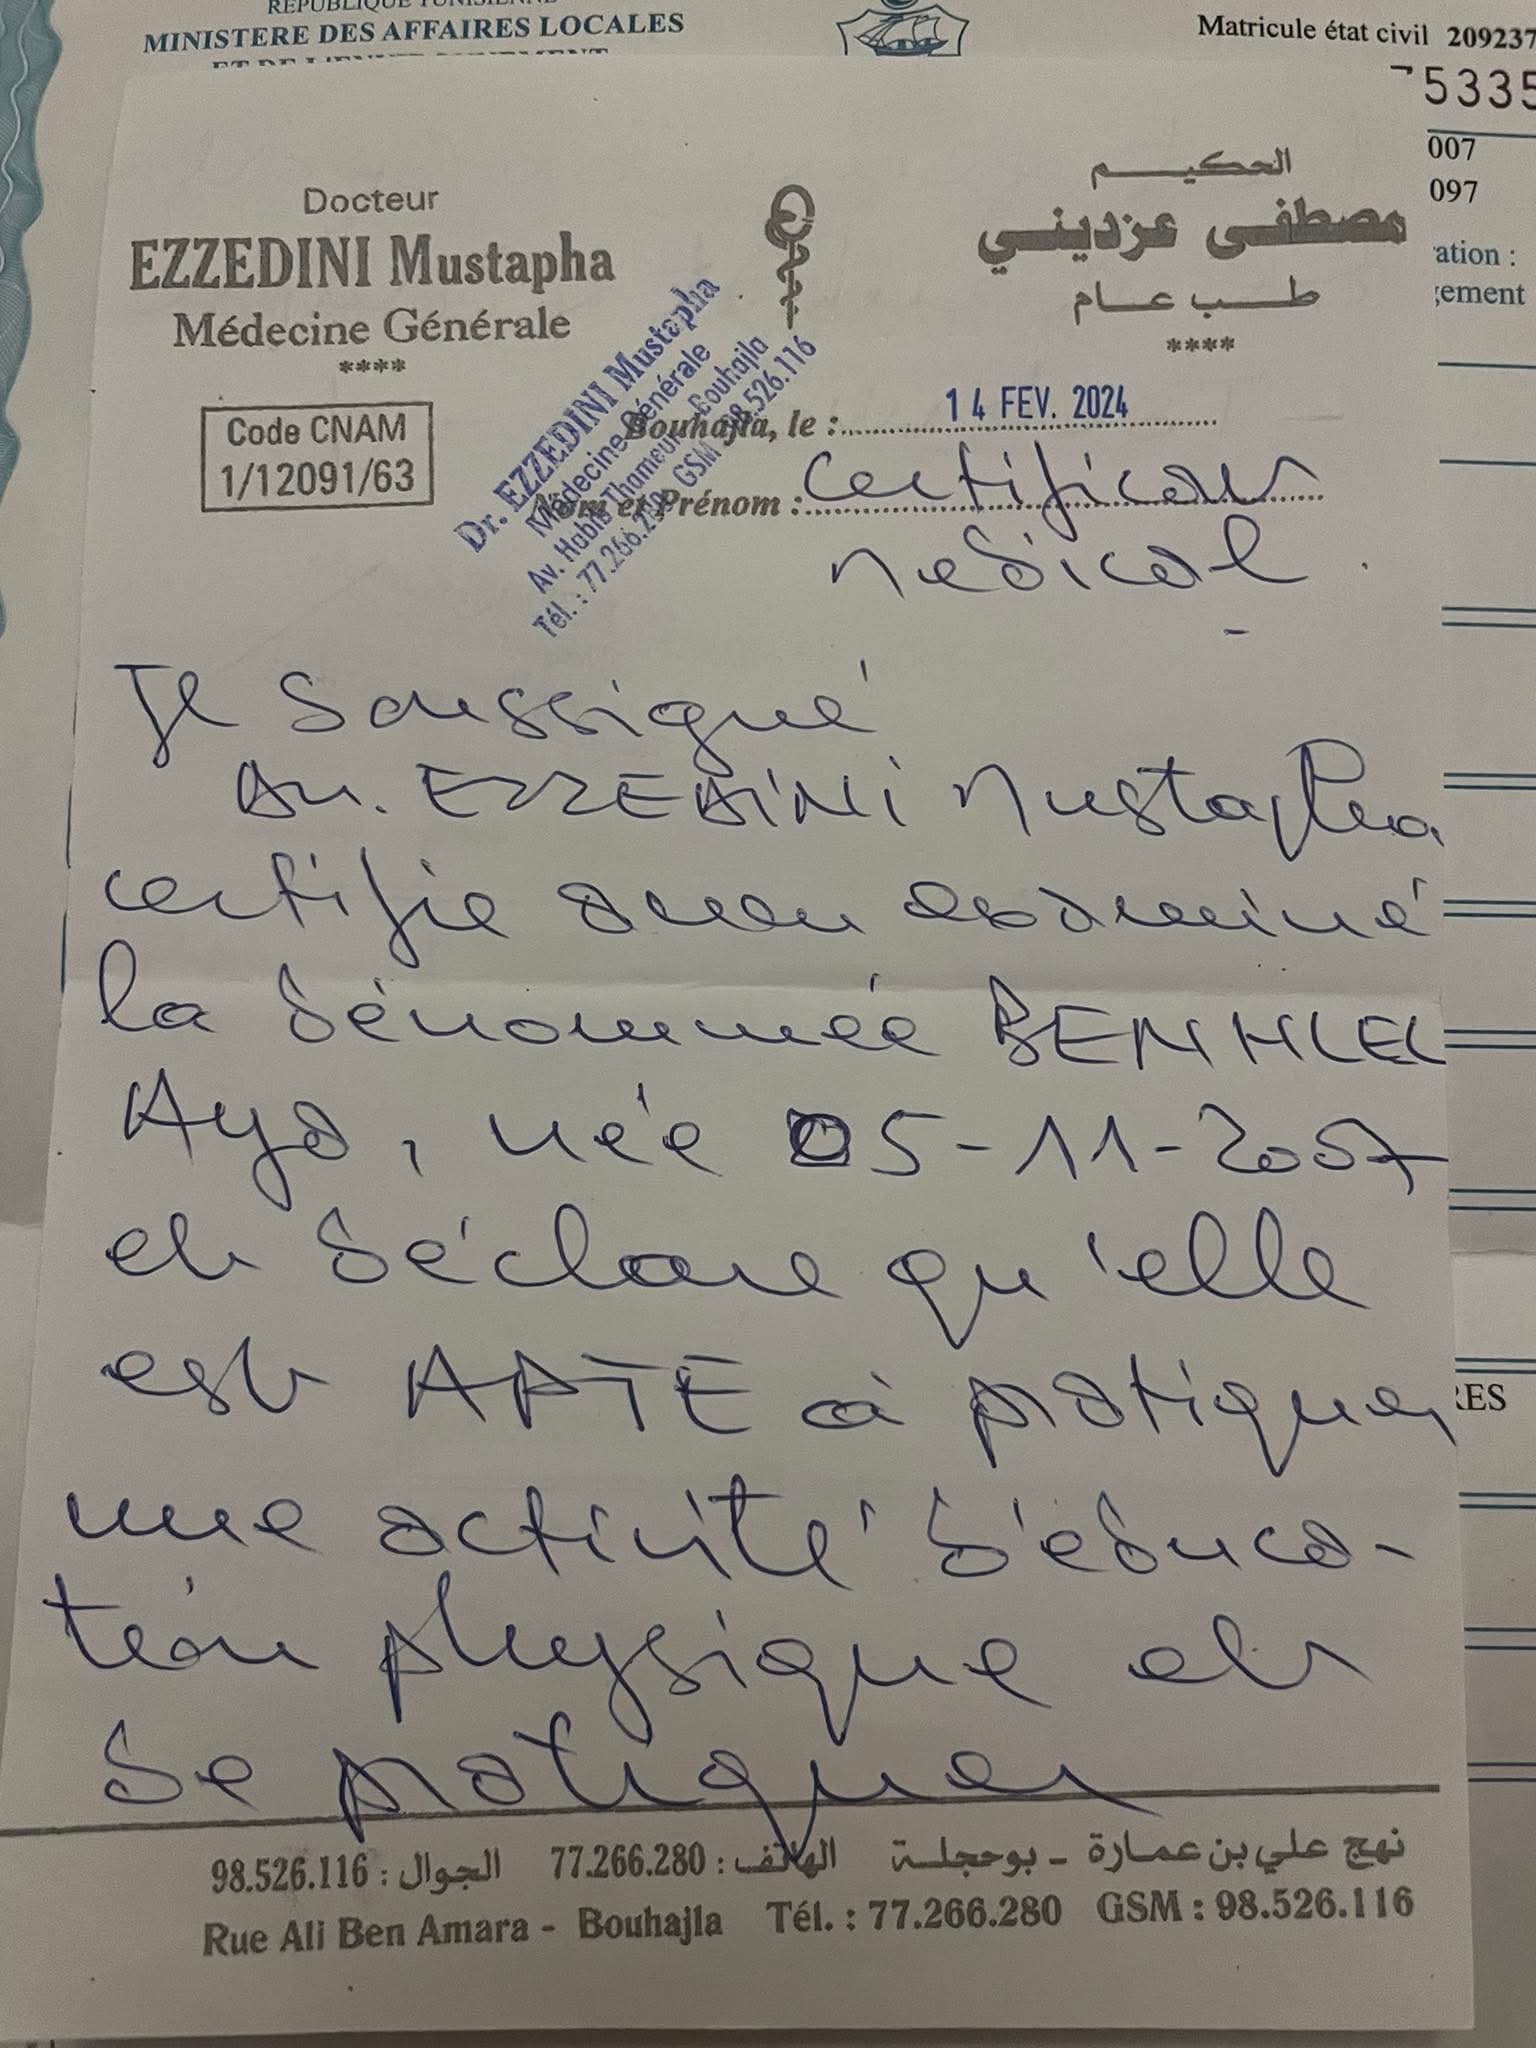 REPUBLIQUE TUNISIENNE
MINISTERE DES AFFAIRES LOCALES
Matricule état civil 209237
5335
007
097
ation :
gement
RES
Docteur
EZZEDINI Mustapha
Médecine Générale
****
Code CNAM
1/12091/63
الحكيم
مصطفى عزديني
طب عام
****
Dr. EZZEDINI Mustapha
Médecine Générale
Av. Habib Thameur - Bouhajla
Tél. : 77.266.280 GSM 98.526.116
Bouhajla, le : 14 FEV. 2024
Nom et Prénom : Certificat
medical
Je soussigné
Dr. EZZEDINI Mustapha
certifie avoir examiné
la dénommée BEN HLEL
Aya, née 05-11-2007
et déclare qu'elle
est APTE à pratiquer
une activité d'éduca-
tion physique et
de pratiquer
نهج علي بن عمارة - بوحجلة الهاتف : 77.266.280 الجوال : 98.526.116
Rue Ali Ben Amara - Bouhajla Tél. : 77.266.280 GSM : 98.526.116